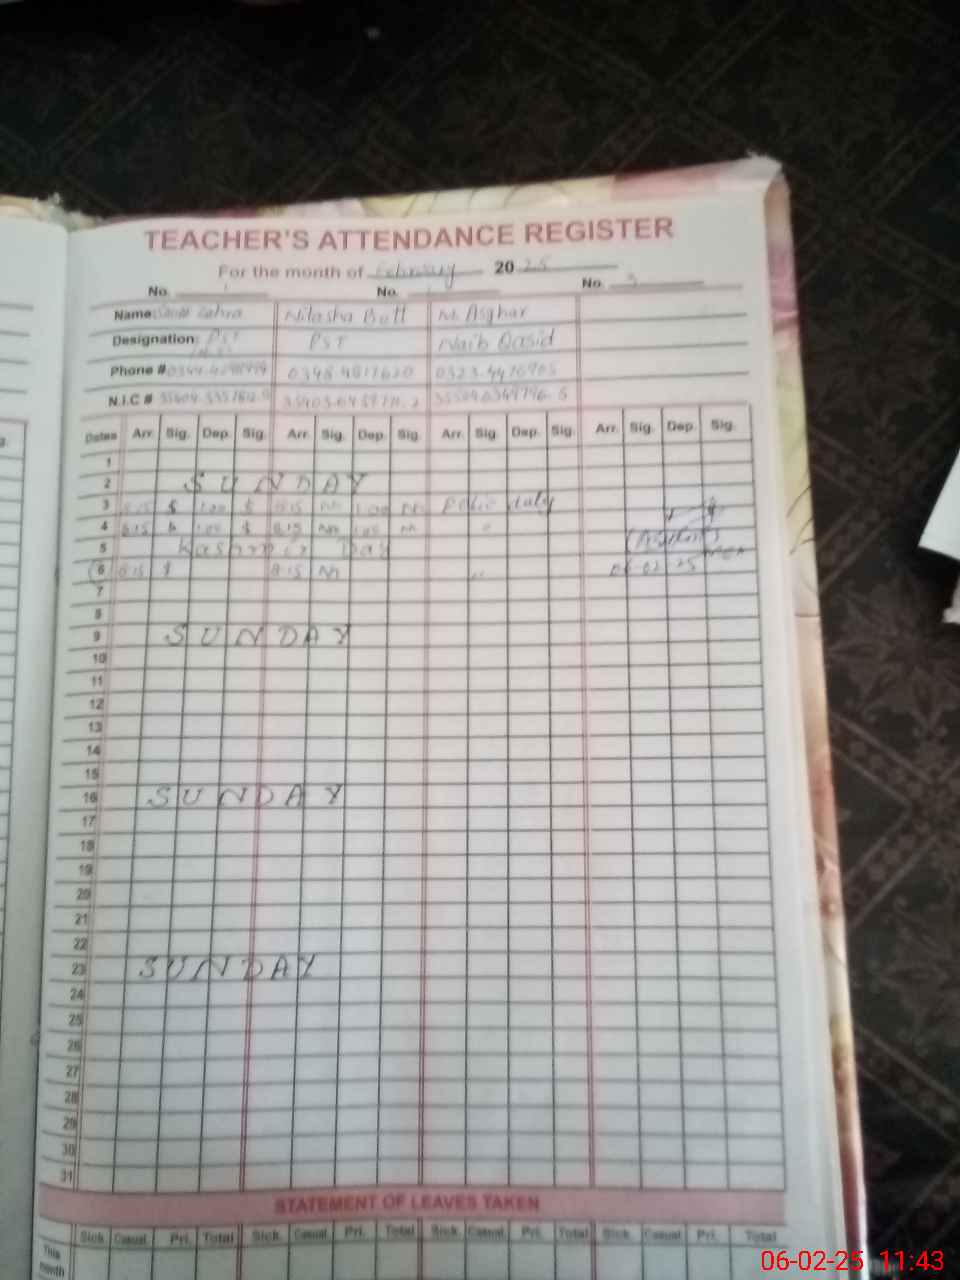 TEACHER'S ATTENDANCE REGISTER
For the month of February 2025
No. 1 No. No. 3
Name: Zahra Nilasha Butt M. Asghar
Designation: PST PST Naib Qasid
Phone # 0348-4817620
N.I.C #
Dates Arr. Sig. Dep. Sig. Arr. Sig. Dep. Sig. Arr. Sig. Dep. Sig. Arr. Sig. Dep. Sig.
1
2 SUNDAY
3 8:15 1:00 8:15 1:00 Polio duty
4 8:15 1:00 8:15 1:00 "
5 Kashmir Day
6 8:15 8:15 " 06-02-25
7
8
9 SUNDAY
10
11
12
13
14
15
16 SUNDAY
17
18
19
20
21
22
23 SUNDAY
24
25
26
27
28
29
30
31
STATEMENT OF LEAVES TAKEN
Sick. Casual. Pri. Total Sick. Casual. Pri. Total Sick. Casual. Pri. Total Sick. Casual. Pri. Total
This month
06-02-25 11:43